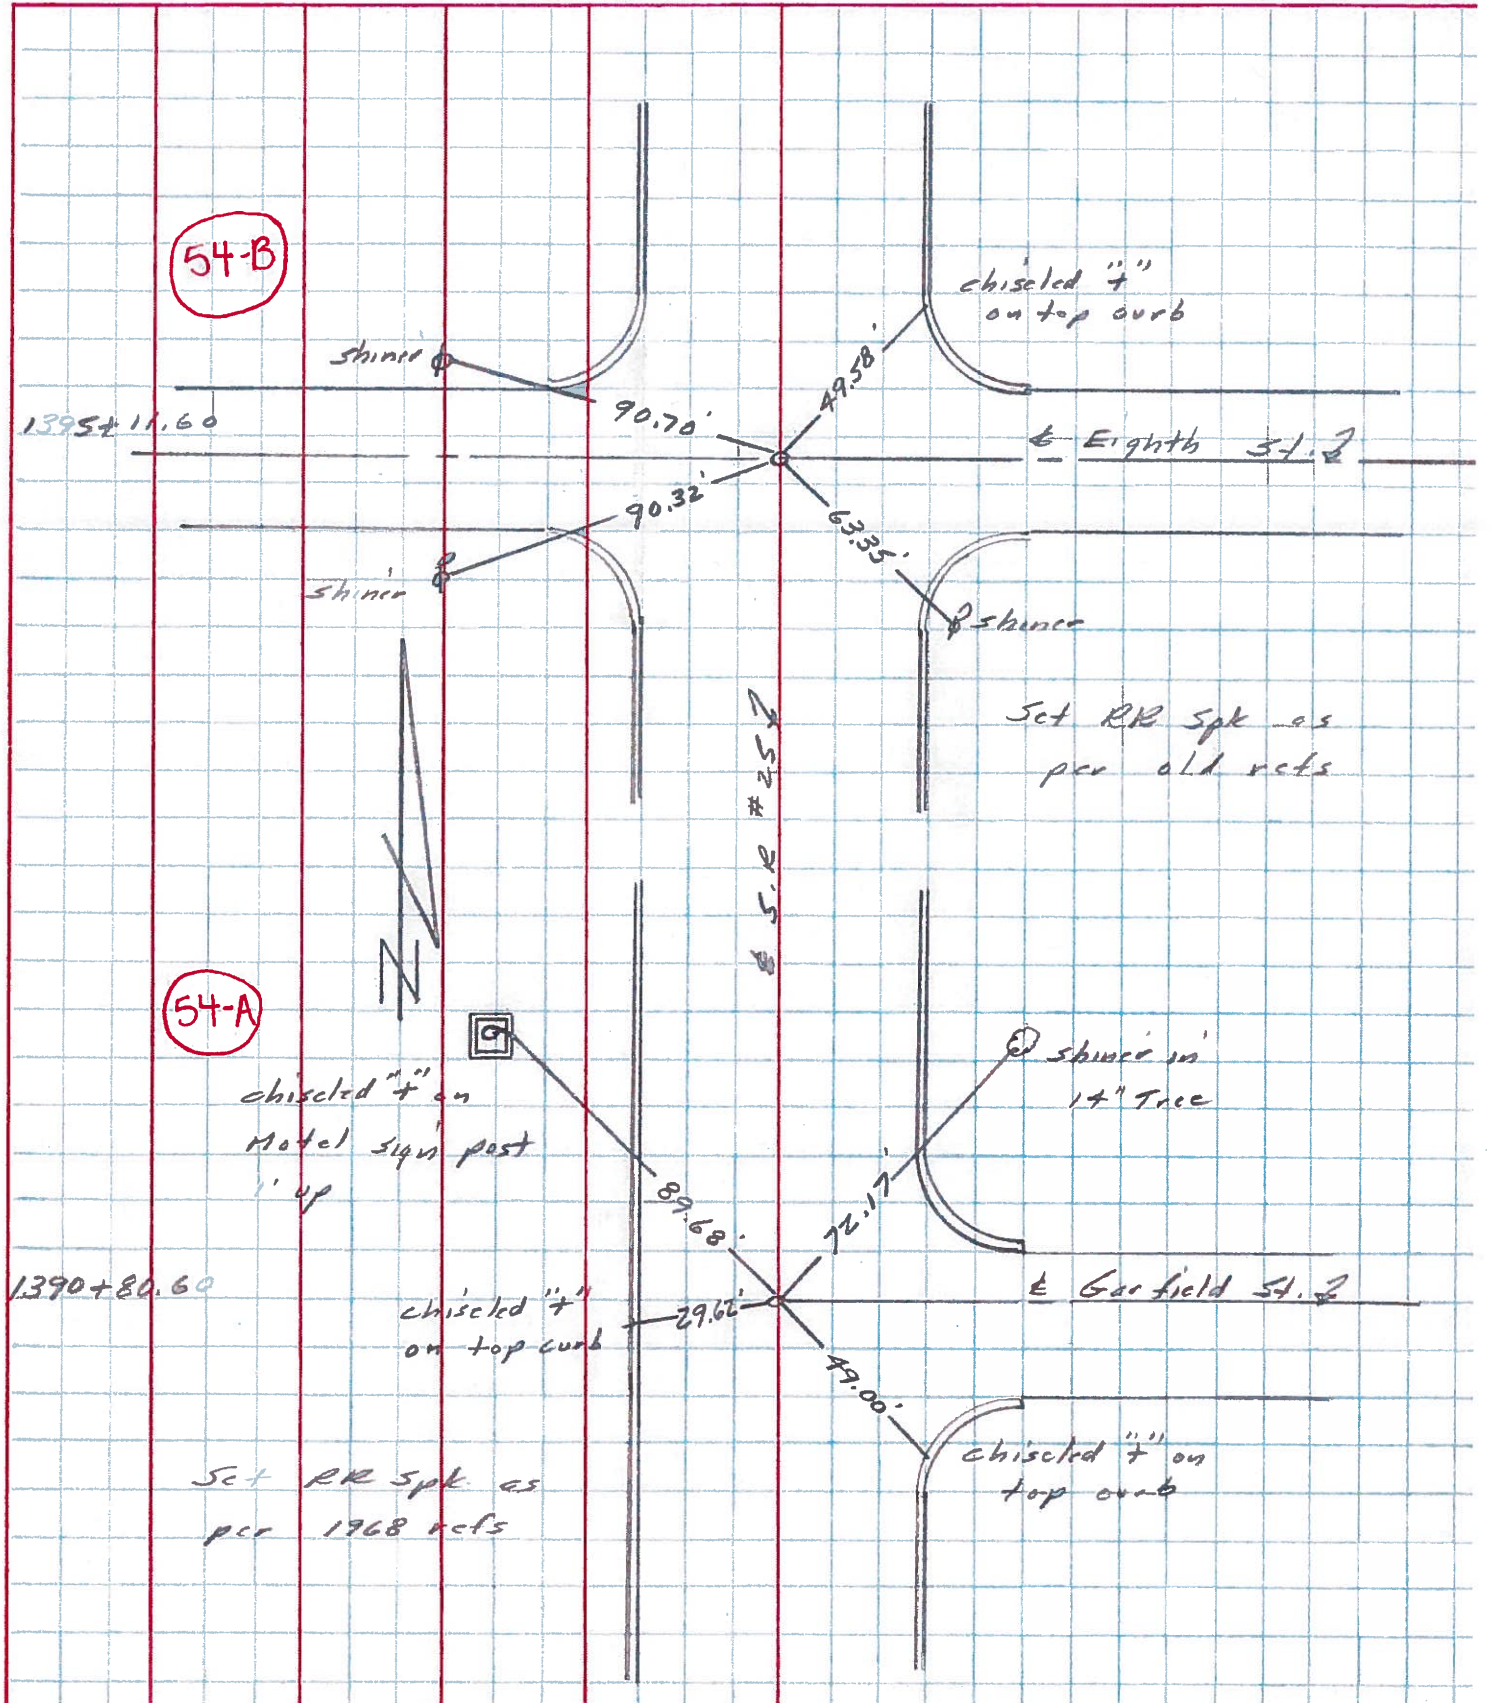 54-B
chiseled "+"
on top curb
shiner
49.58'
90.70'
1395+11.60
℄ Eighth St.
90.32'
63.35'
shiner
shiner
Set RR Spk as
per old refs
℄ S.R #25
N
54-A
shiner in
14" Tree
chiseled "+" on
Motel sign post
1' up
89.68'
72.17'
1390+80.60
℄ Garfield St.
chiseled "+"
on top curb
29.62'
49.00'
chiseled "+" on
top curb
Set RR Spk. as
per 1968 refs